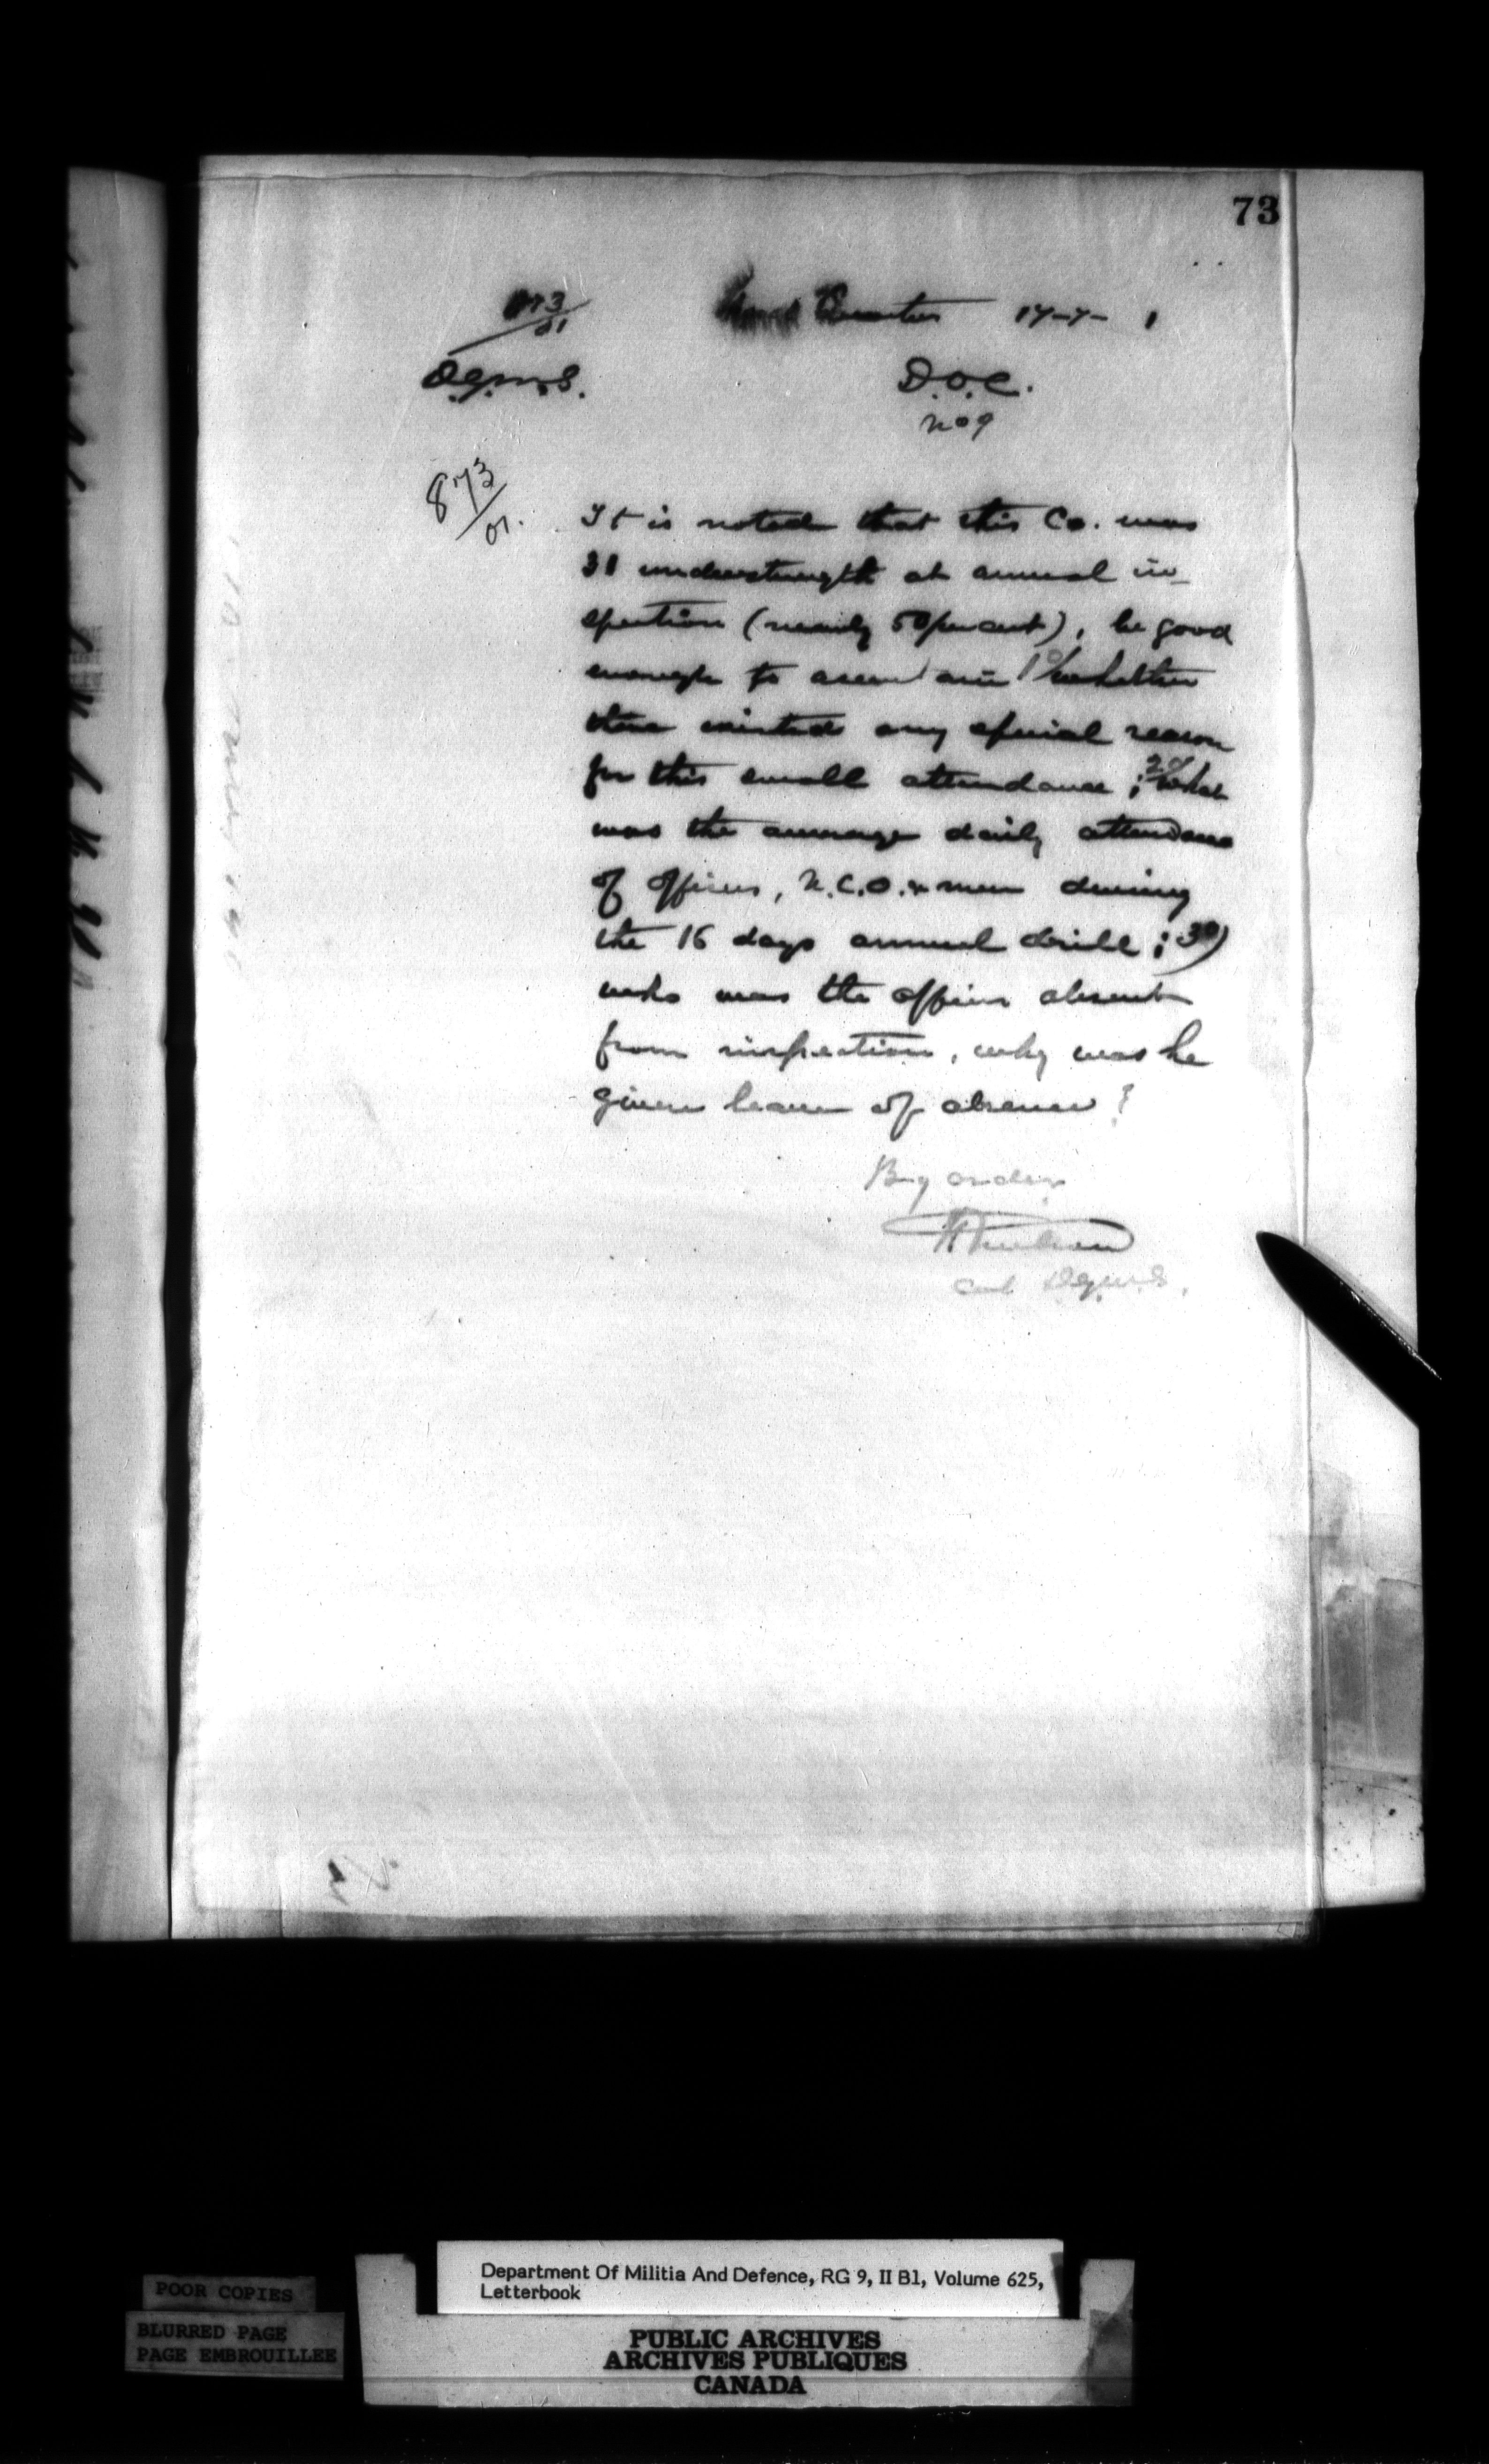 73
873/01
Head Quarters 17-7- 1
D.G.M.S.
D.O.C.
No 9
873/01.
It is noted that this Co. was
31 understrength at annual in-
spection (nearly 50 percent), be good
enough to ascertain 1°/ whether
there existed any special reason
for this small attendance; 2°/ what
was the average daily attendance
of officers, N.C.O. & men during
the 16 days annual drill; 3°)
who was the officer absent
from inspection, why was he
given leave of absence?
By order
Col D.G.M.S.
Department Of Militia And Defence, RG 9, II B1, Volume 625,
Letterbook
POOR COPIES
BLURRED PAGE
PAGE EMBROUILLEE
PUBLIC ARCHIVES
ARCHIVES PUBLIQUES
CANADA